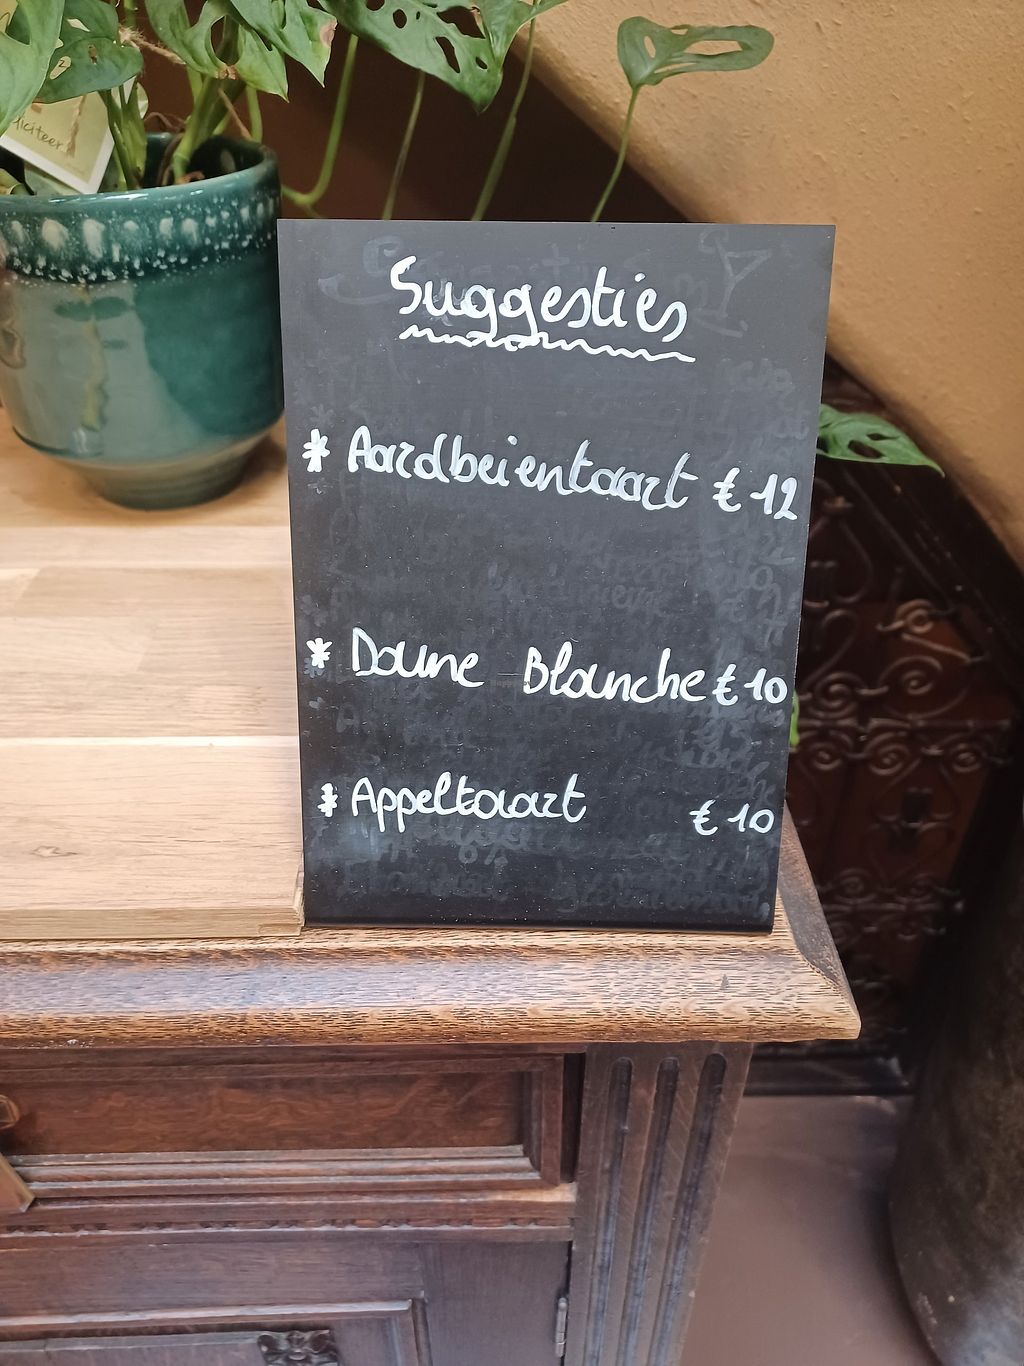 Suggesties
* Aardbeientaart € 12
* Daume Blanche € 10
* Appeltaart € 10